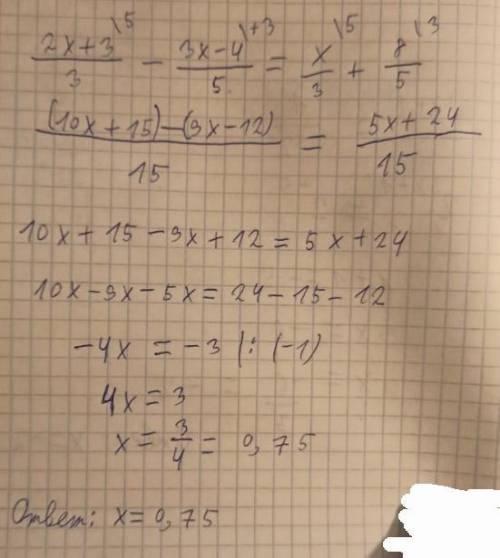 (2x+3)/3 \5 − (3x−4)/5 \+3 = x/3 \5 + 8/5 \3
((10x+15)−(9x−12))/15 = (5x+24)/15
10x+15−9x+12=5x+24
10x−9x−5x=24−15−12
−4x = −3 |: (−1)
4x=3
x=3/4=0,75
Ответ: x=0,75